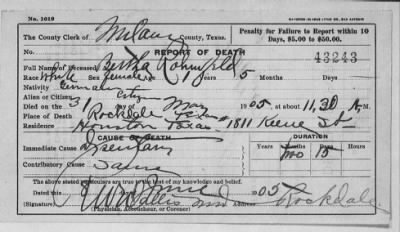 No. 1019
The County Clerk of Milam County, Texas.
Penalty for Failure to Report within 10 Days, $5.00 to $50.00.
REPORT OF DEATH
43243
Full Name of Deceased Bertha
Race White Sex female Age 1 Years 5 Months Days
Nativity
Alien or Citizen Citizen
Died on the 31 day of May 1905 at about 11,30 M.
Place of Death Rockdale Texas
Residence Houston Texas 1811 Keene St
CAUSE OF DEATH
DURATION
Immediate Cause Dysentary Years Months Days 15
Contributory Cause Same
The above stated particulars are true to the best of my knowledge and belief.
(Signature) Wallis MD Address Rockdale
(Physician, Accoucheur, or Coroner)